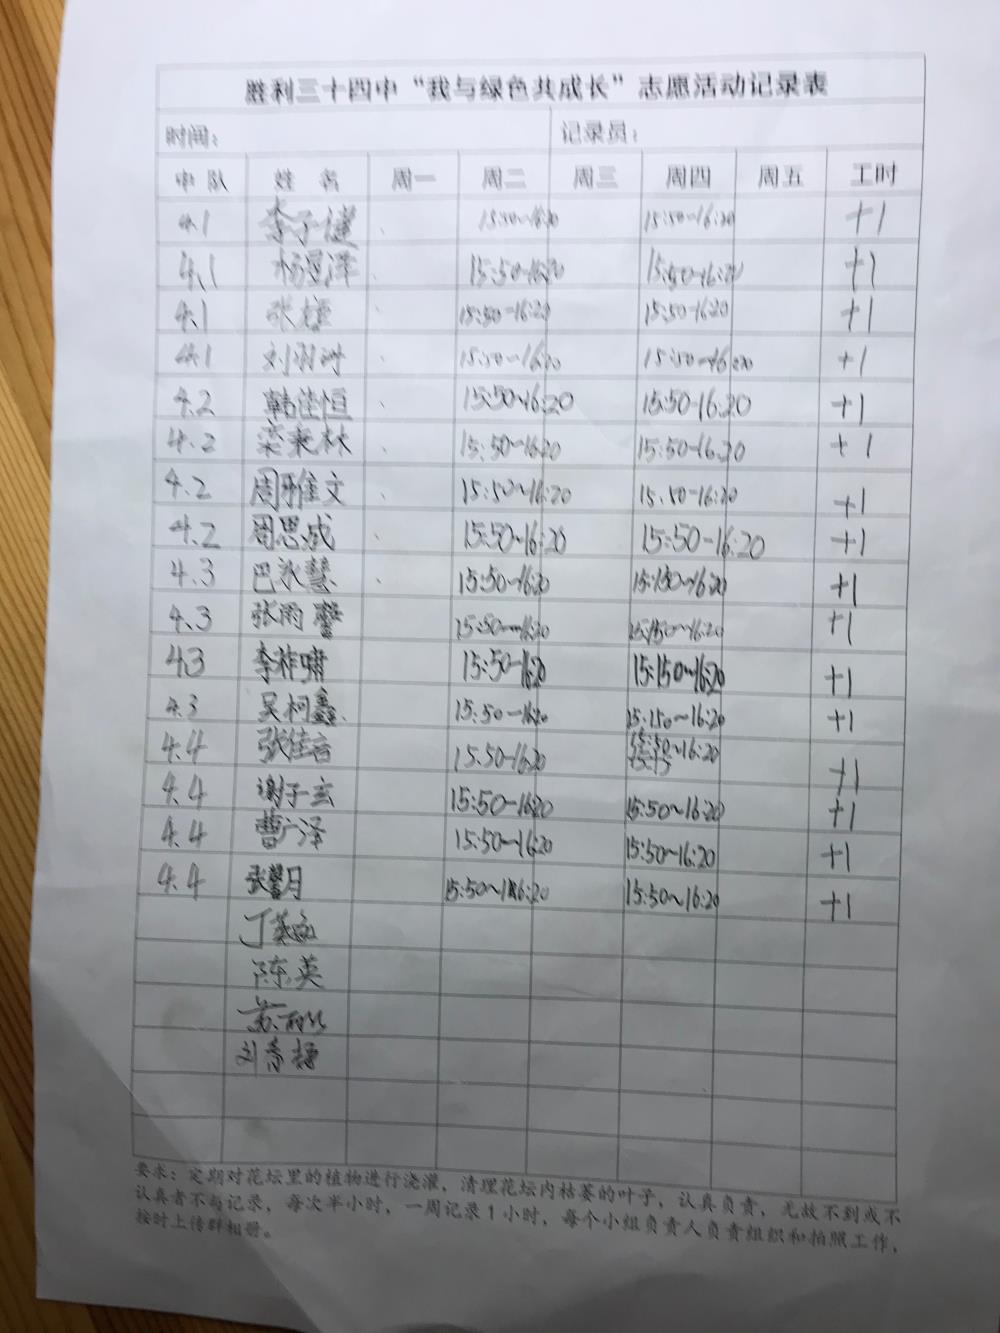 胜利三十四中“我与绿色共成长”志愿活动记录表
时间： 记录员：
中队 姓名 周一 周二 周三 周四 周五 工时
4.1 李子健 15:50~16:20 15:50~16:20 +1
4.1 杨昱泽 15:50-16:20 15:50-16:20 +1
4.1 张 15:50-16:20 15:50-16:20 +1
4.1 刘羽 15:50~16:20 15:50~16:20 +1
4.2 韩佳恒 15:50~16:20 15:50-16:20 +1
4.2 栾秉林 15:50~16:20 15:50-16:20 +1
4.2 周雅文 15:50~16:20 15:50-16:20 +1
4.2 周思成 15:50~16:20 15:50-16:20 +1
4.3 巴冰慧 15:50-16:20 15:150~16:20 +1
4.3 张雨馨 15:50~16:20 15:150~16:20 +1
43 李祚啸 15:50-16:20 15:150~16:20 +1
4.3 吴柯鑫 15:50-16:20 15:150~16:20 +1
4.4 张佳言 15:50-16:20 15:50~16:20 +1
4.4 谢子玄 15:50-16:20 15:50~16:20 +1
4.4 曹广泽 15:50~16:20 15:50~16:20 +1
4.4 张馨月 15:50~16:20 15:50~16:20 +1
丁
陈英
刘
要求：定期对花坛里的植物进行浇灌，清理花坛内枯萎的叶子，认真负责，无故不到或不
认真者不与记录，每次半小时，一周记录1小时，每个小组负责人负责组织和拍照工作，
按时上传群相册。